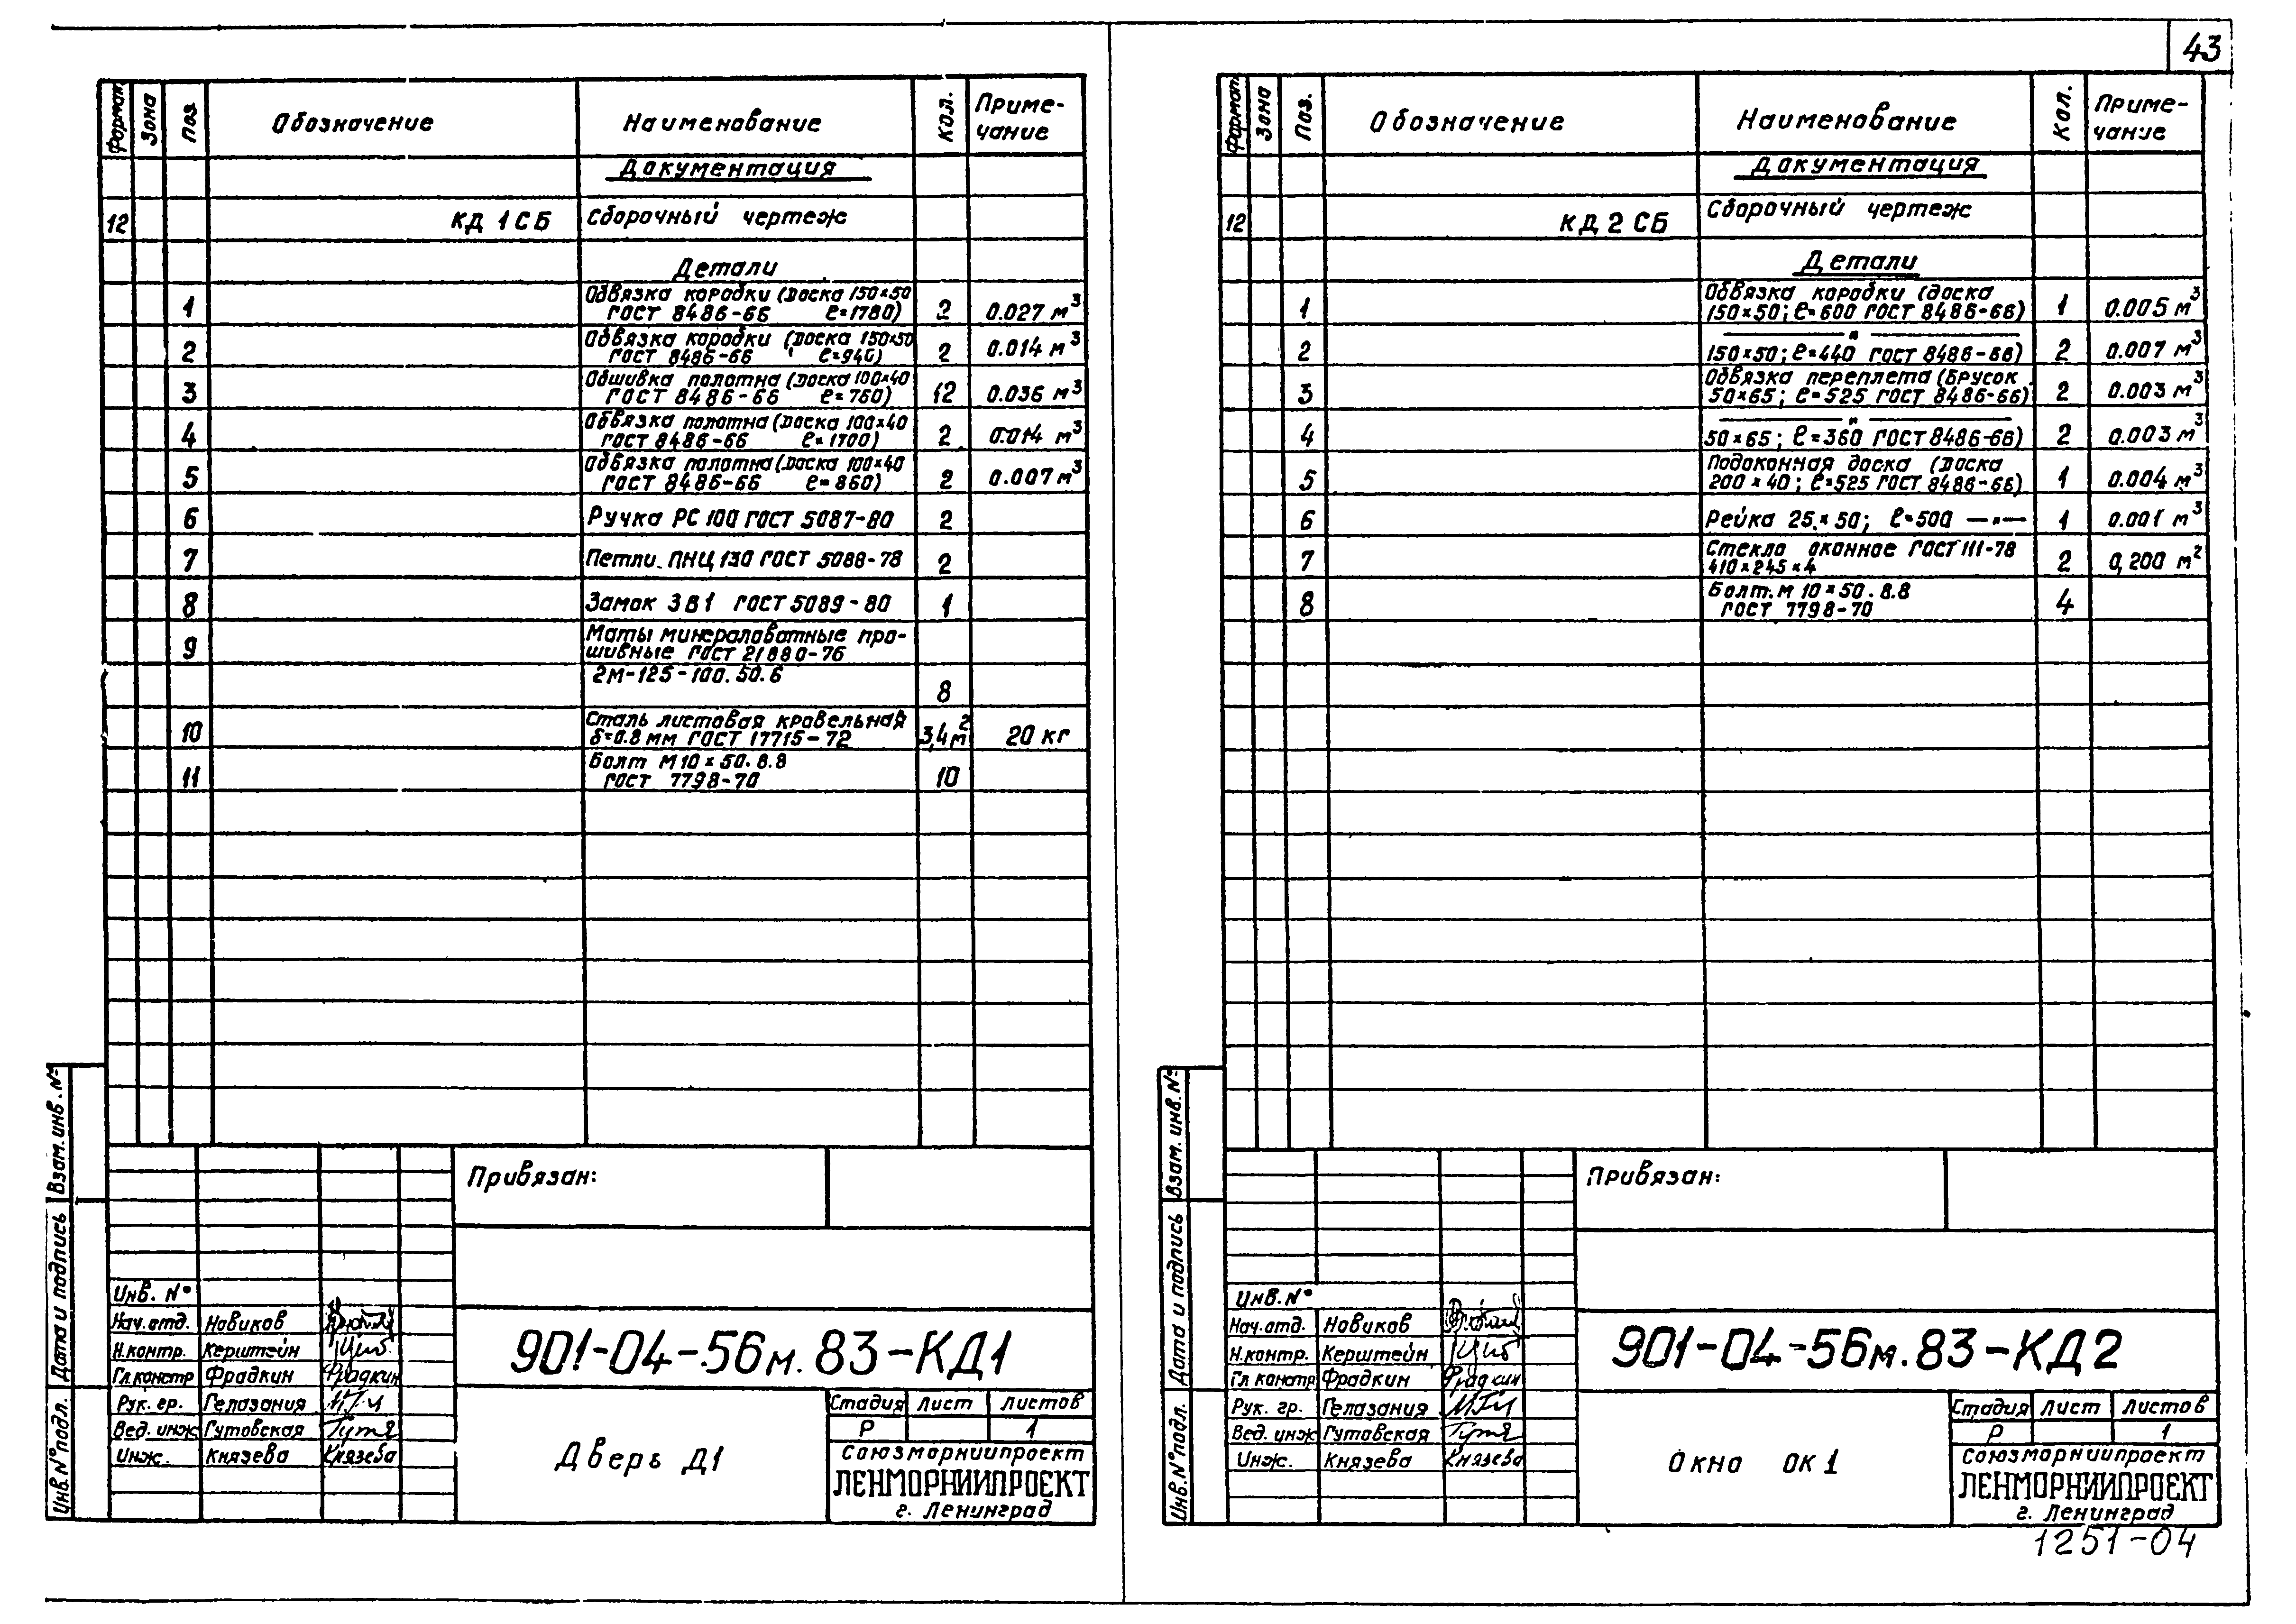 43
Формат Зона Поз. Обозначение Наименование Кол. Приме-
чание
Документация
12 КД 1 СБ Сборочный чертеж
Детали
Обвязка коробки (доска 150×50
1 ГОСТ 8486-66 ℓ=1780) 2 0.027 м³
Обвязка коробки (доска 150×50
2 ГОСТ 8486-66 ℓ=940) 2 0.014 м³
Обшивка полотна (доска 100×40
3 ГОСТ 8486-66 ℓ=760) 12 0.036 м³
Обвязка полотна (доска 100×40
4 ГОСТ 8486-66 ℓ=1700) 2 0.014 м³
Обвязка полотна (доска 100×40
5 ГОСТ 8486-66 ℓ=860) 2 0.007 м³
6 Ручка РС 100 ГОСТ 5087-80 2
7 Петли ПНЦ 130 ГОСТ 5088-78 2
8 Замок ЗВ1 ГОСТ 5089-80 1
Маты минераловатные про-
9 шивные ГОСТ 21880-76
2М-125-100.50.6
8
Сталь листовая кровельная
10 δ=0.8 мм ГОСТ 17715-72 3,4 м² 20 кг
Болт М10×50.8.8
11 ГОСТ 7798-70 10
Привязан:
Инв. №
Нач. отд. Новиков
Н.контр. Керштейн
Гл.констр Фрадкин Фрадкин
Рук. гр. Гелазания
Вед. инж Гутовская
Инж. Князева Князева
901-04-56м.83-КД1
Дверь Д1
Стадия Лист Листов
Р 1
Союзморниипроект
ЛЕНМОРНИИПРОЕКТ
г. Ленинград
Взам. инв. №
Дата и подпись
Инв. № подл.
Формат Зона Поз. Обозначение Наименование Кол. Приме-
чание
Документация
12 КД 2 СБ Сборочный чертеж
Детали
Обвязка коробки (доска
1 150×50; ℓ=600 ГОСТ 8486-66) 1 0.005 м³
— " —
2 150×50; ℓ=440 ГОСТ 8486-66) 2 0.007 м³
Обвязка переплета (брусок
3 50×65; ℓ=525 ГОСТ 8486-66) 2 0.003 м³
— " —
4 50×65; ℓ=360 ГОСТ 8486-66) 2 0.003 м³
Подоконная доска (доска
5 200×40; ℓ=525 ГОСТ 8486-66) 1 0.004 м³
6 Рейка 25×50; ℓ=500 —"— 1 0.001 м³
Стекло оконное ГОСТ 111-78
7 410×245×4 2 0,200 м²
Болт. М 10×50.8.8
8 ГОСТ 7798-70 4
Привязан:
Инв. №
Нач. отд. Новиков
Н.контр. Керштейн
Гл констр Фрадкин Фрадкин
Рук. гр. Гелазания
Вед. инж Гутовская
Инж. Князева Князева
901-04-56м.83-КД2
Окно ОК1
Стадия Лист Листов
Р 1
Союзморниипроект
ЛЕНМОРНИИПРОЕКТ
г. Ленинград
Взам. инв. №
Дата и подпись
Инв. № подл.
1251-04